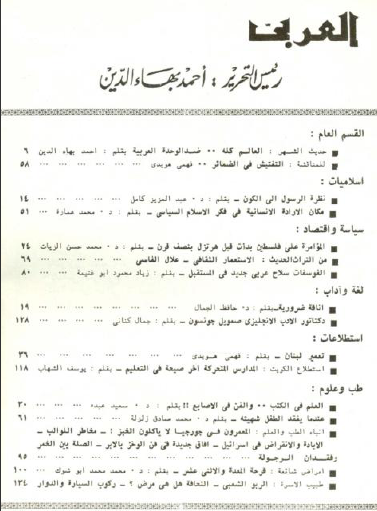 العربي
رئيس التحرير : أحمد بهاء الدين
القسم العام :
حديث الشهر : العالم كله ٠٠ ضد الوحدة العربية بقلم : احمد بهاء الدين ٦
للمناقشة : التفتيش في الضمائر ــ فهمي هويدي ٥٨
اسلاميات :
نظرة الرسول الى الكون ــ بقلم : د ٠ عبد العزيز كامل ١٤
مكان الارادة الانسانية في فكر الاسلام السياسي ــ بقلم : د ٠ محمد عمارة ٥١
سياسة واقتصاد :
المؤامرة على فلسطين بدأت قبل هرتزل بنصف قرن ــ بقلم : د ٠ محمد حسن الزيات ٢٤
من التراث الحديث : الاستعمار الثقافي ــ علال الفاسي ٦٩
الفوسفات سلاح عربي جديد في المستقبل ــ بقلم : زياد محمود ابو غنيمة ٨٠
لغة وآداب :
اناقة ضرورية ــ بقلم : د٠ حافظ الجمالي ١٩
دكتاتور الادب الانجليزي صمويل جونسون ــ بقلم : جمال كناني ١٢٨
استطلاعات :
تعمير لبنان ــ بقلم : فهمي هويدي ٣٦
استطلاع الكويت : المدارس المتحركة آخر صيحة في التعليم ــ بقلم : يوسف الشهاب ١١٨
طب وعلوم :
العلم في الكتب ٠٠ والفن في الاصابع !! بقلم : د ٠ سعيد عبده ٣٠
عندما يفقد الطفل شهيته ــ بقلم د ٠ محمد صادق زلزلة ٦١
انباء الطب والعلم : المعمرون في جورجيا لا ياكلون الخبز : ــ مخاطر النوالب ــ
الابادة والانقراض في اسرائيل ــ آفاق جديدة في فن الوخز بالابر ــ الصلة بين الخمر
وفقدان الرجولة ٩٥
امراض شائعة : قرحة المعدة والاثنى عشر ــ بقلم : د ٠ محمد محمد ابو شوك ١٠٠
طبيب الاسرة : الربو الشعبي ــ النحافة هل هي مرض ؟ ــ ركوب السيارة والدوار ١٣٤